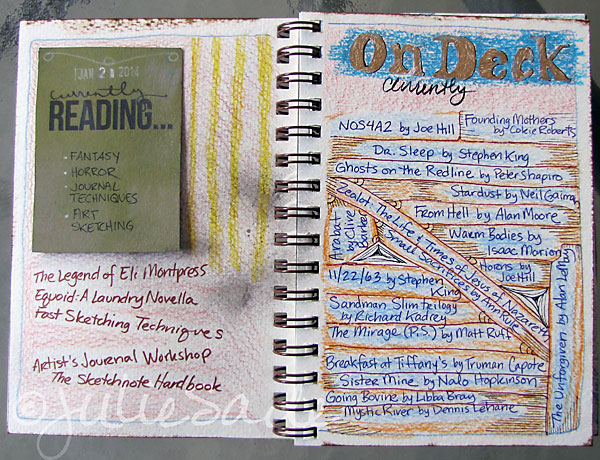 JAN 2 2014
currently
READING...
- FANTASY
- HORROR
- JOURNAL
TECHNIQUES
- ART
SKETCHING
The Legend of Eli Montpress
Equoid: A Laundry Novella
Fast Sketching Techniques
Artist's Journal Workshop
The Sketchnote Handbook
On Deck
currently
NOS4A2 by Joe Hill
Founding Mothers
by Cokie Roberts
Dr. Sleep by Stephen King
Ghosts on the Redline by Peter Shapiro
Stardust by Neil Gaiman
Zealot: The Life & Times of Jesus of Nazareth
Small Sacrifices by Ann Rule
From Hell by Alan Moore
Warm Bodies by
Isaac Marion
Arabat
by Clive
Barker
Horns by
Joe Hill
11/22/63 by Stephen
King
Sandman Slim trilogy
by Richard Kadrey
The Mirage (P.S.) by Matt Ruff
Breakfast at Tiffany's by Truman Capote
Sister Mine by Nalo Hopkinson
Going Bovine by Libba Bray
Mystic River by Dennis Lehane
The Unforgiven by Alan LeMay
© Julie